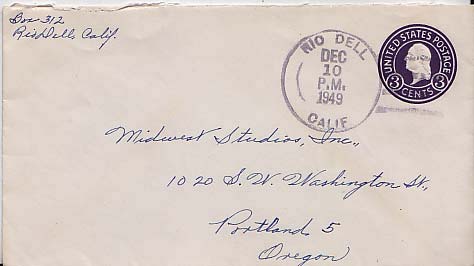 Box 312
Rio Dell, Calif.
RIO DELL
DEC
10
P.M.
1949
CALIF
UNITED STATES POSTAGE
3 CENTS 3
Midwest Studios, Inc.,
1020 S. W. Washington St.,
Portland, 5
Oregon